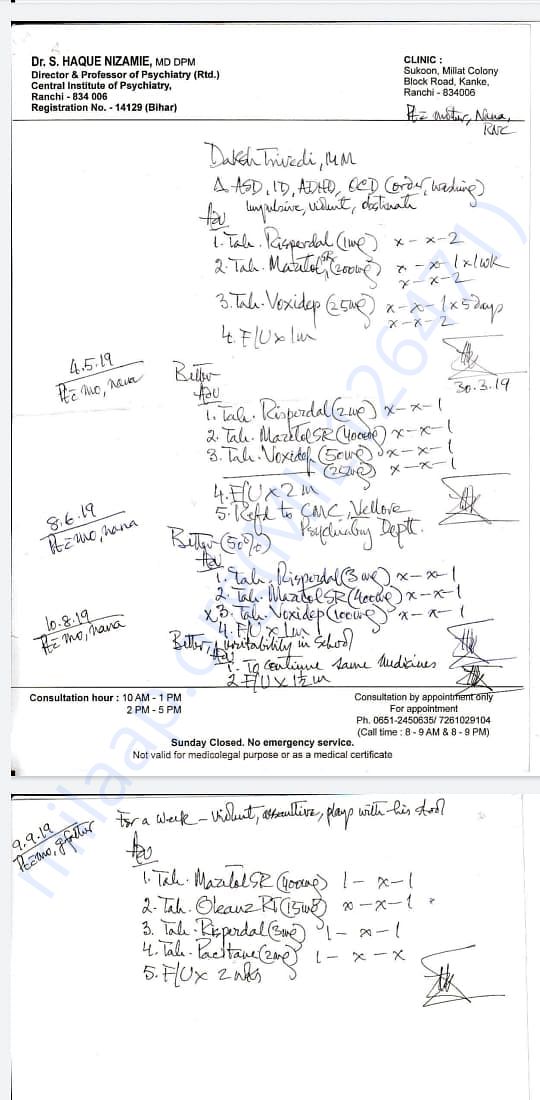 Dr. S. HAQUE NIZAMIE, MD DPM
Director & Professor of Psychiatry (Rtd.)
Central Institute of Psychiatry,
Ranchi - 834 006
Registration No. - 14129 (Bihar)
CLINIC :
Sukoon, Millat Colony
Block Road, Kanke,
Ranchi - 834006
mother, Nana,
RNC
Daksh Trivedi, 14M
Δ ASD, ID, ADHD, OCD (order, washing)
Impulsive, violent, obstinate
Adv
1. Tab. Risperdal (1mg) x - x - 2
2. Tab. Mazetol SR (200mg) x - x - 1 x 1wk
x - x - 2
3. Tab. Voxidep (25mg) x - x - 1 x 5days
x - x - 2
4. F/U x 1m
30.3.19
4.5.19
mo, nana
Better
Adv
1. Tab. Risperdal (2mg) x - x - 1
2. Tab. Mazetol SR (400mg) x - x - 1
3. Tab. Voxidep (50mg) x - x - 1
(25mg) x - x - 1
4. F/U x 2m
5. Refd to CMC, Vellore
Psychiatry Deptt.
8.6.19
mo, nana
Better (50%)
Adv
1. Tab. Risperdal (3mg) x - x - 1
2. Tab. Mazetol SR (400mg) x - x - 1
3. Tab. Voxidep (100mg) x - x - 1
4. F/U x 1m
10.8.19
mo, nana
Better, irritability in School
Adv
1. To continue same medicines
2. F/U x 1½m
Consultation hour : 10 AM - 1 PM
2 PM - 5 PM
Consultation by appointment only
For appointment
Ph. 0651-2450635/ 7261029104
(Call time : 8 - 9 AM & 8 - 9 PM)
Sunday Closed. No emergency service.
Not valid for medicolegal purpose or as a medical certificate
9.9.19
mo, gfather
For a week - violent, assaultive, plays with his stool
Adv
1. Tab. Mazetol SR (400mg) 1 - x - 1
2. Tab. Oleanz RT (15mg) x - x - 1
3. Tab. Risperdal (3mg) 1 - x - 1
4. Tab. Pacitane (2mg) 1 - x - x
5. F/U x 2 wks